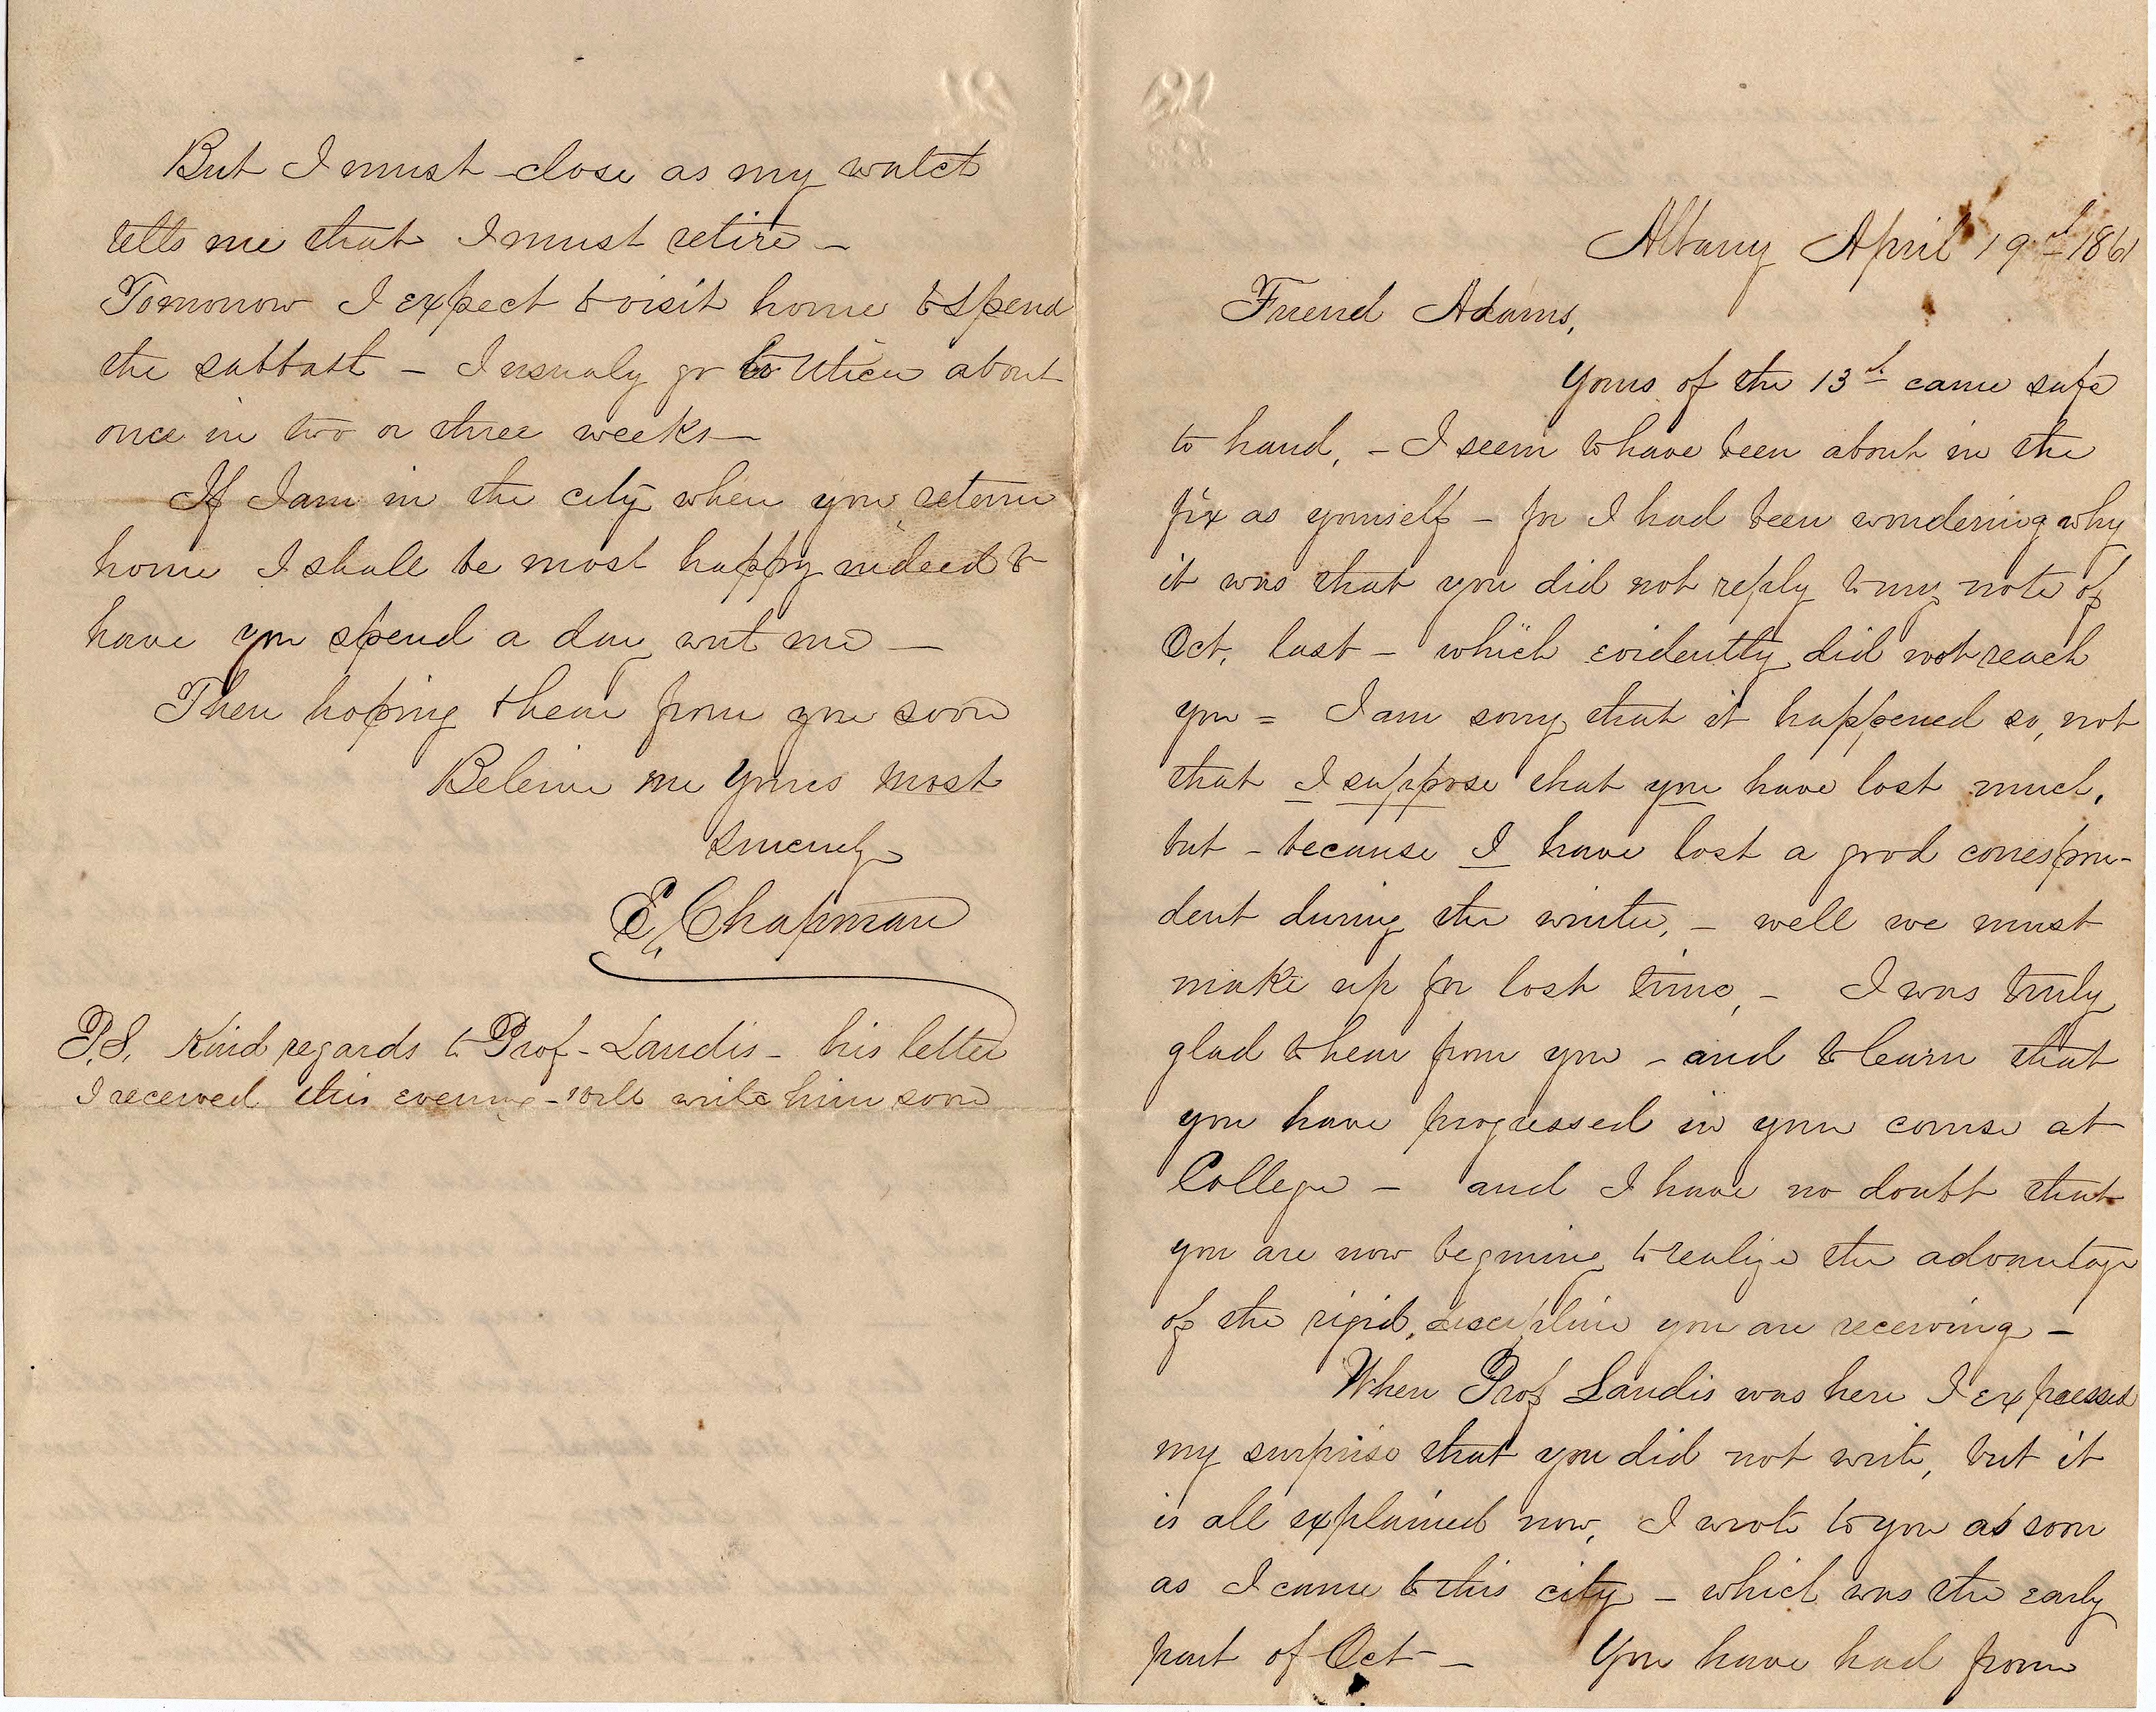 Albany April 19th 1861
Friend Adams,
Yours of the 13th came safe
to hand, - I seem to have been about in the
fix as yourself - for I had been wondering why
it was that you did not reply to my note of
Oct, last - which evidently did not reach
you = I am sorry that it happened so, not
that I suppose that you have lost much,
but - because I have lost a good correspon-
dent during the winter, - well we must
make up for lost time, - I was truly
glad to hear from you - and to learn that
you have progressed in your course at
College - and I have no doubt that
you are now begining to realize the advantage
of the rigid, discipline you are receiving -
When Prof Landis was here I expressed
my surprise that you did not write, but it
is all explained now, I wrote to you as soon
as I came to this city - which was the early
part of Oct - You have had from
But I must close as my watch
tells me that I must retire -
Tomorrow I expect to visit home to spend
the sabbath - I usualy go to Utica about
once in two or three weeks -
If I am in the city when you return
home I shall be most happy indeed to
have you spend a day with me -
Then hoping to hear from you soon
Beleive me Yours most
Sincerely
E. Chapman
P.S. Kind regards to Prof - Landis - his letter
I received this evening - will write him soon